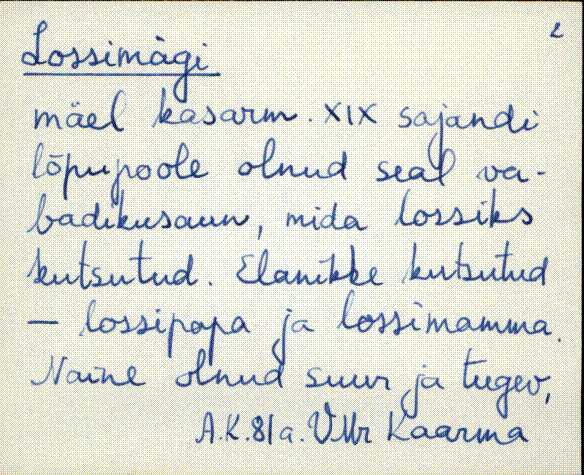 2
Lossimägi
mäel kasarm. XIX sajandi
lõpupoole olnud seal va-
badikusaun, mida lossiks
kutsutud. Elanikke kutsutud
— lossipapa ja lossimamma.
Naine olnud suur ja tugev,
A.K. 81 a. VMr Kaarma